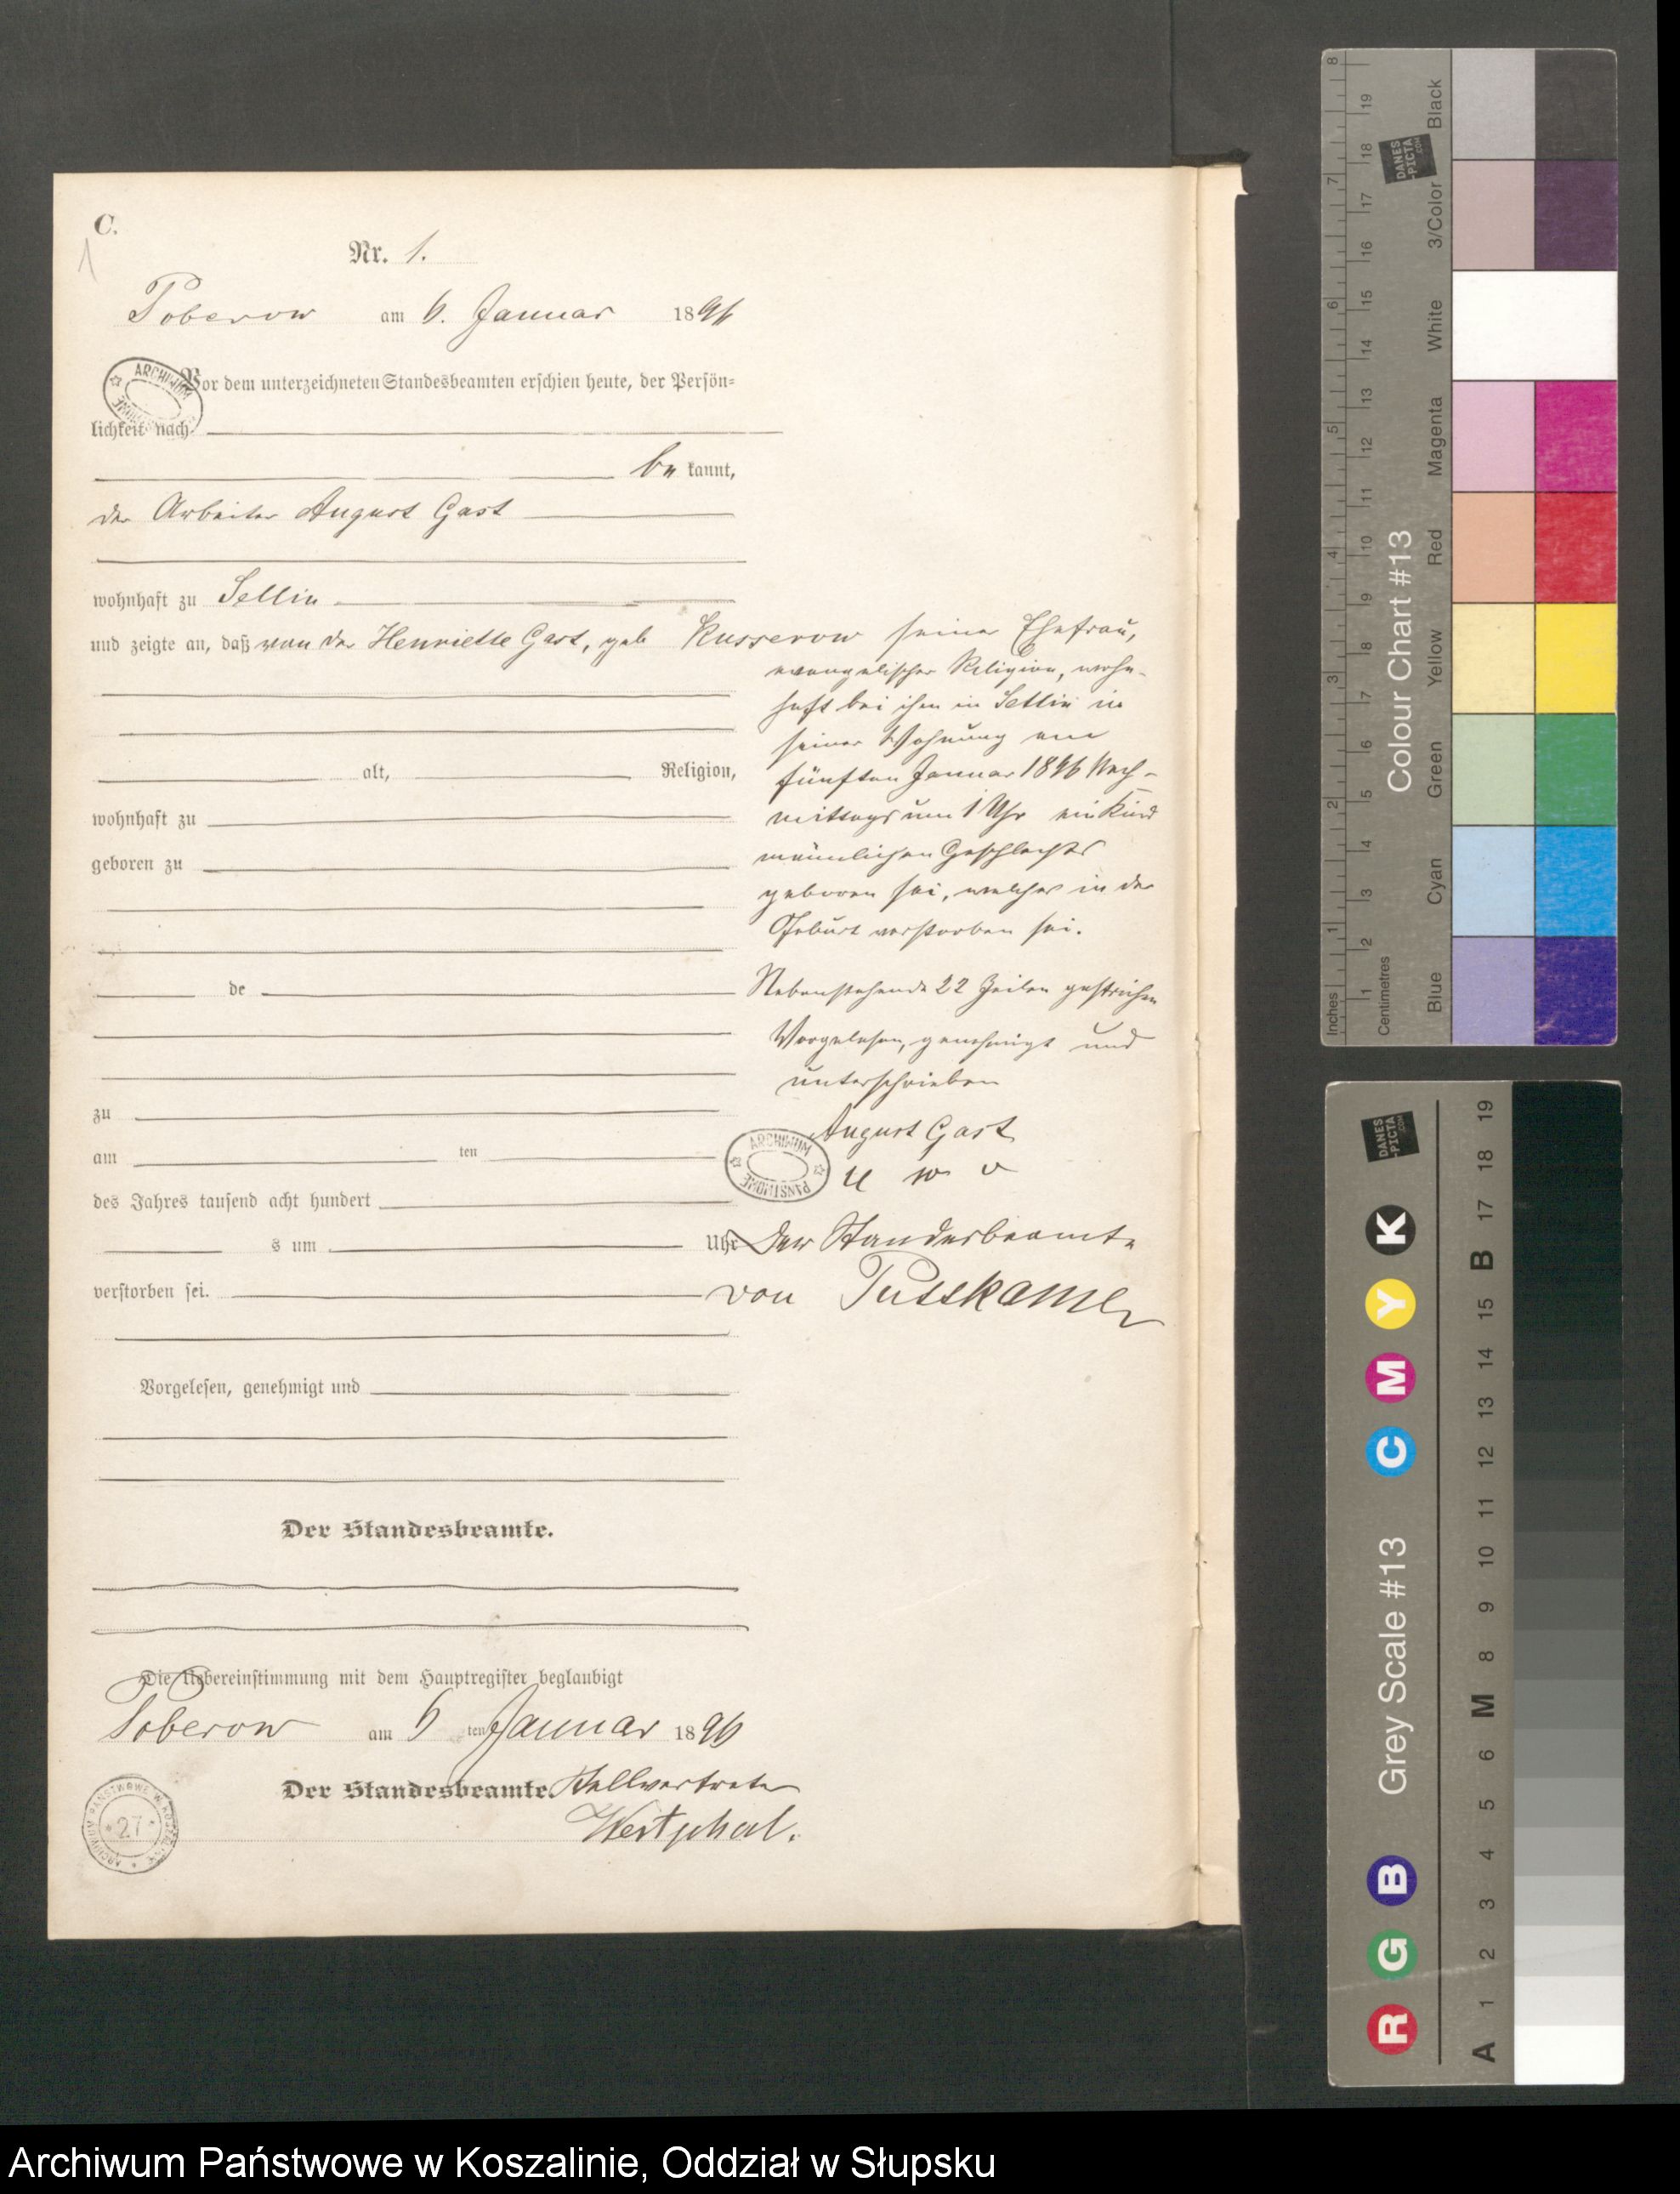 C.
1
Nr. 1.
Poberow am 6. Januar 1896
Vor dem unterzeichneten Standesbeamten erschien heute, der Persön-
lichkeit nach
be kannt,
der Arbeiter August Gast
wohnhaft zu Sellin
und zeigte an, daß von der Henriette Gast, geb Kusserow seiner Ehefrau,
evangelischer Religion, wohn-
haft bei ihm in Sellin in
seiner Wohnung am
alt, Religion,
fünften Januar 1896 Nach-
wohnhaft zu
mittags um 1 Uhr ein Kind
geboren zu
männlichen Geschlechts
geboren sei, welches in der
Geburt verstorben sei.
de
Nebenstehende 22 Zeilen gestrichen
Vorgelesen, genehmigt und
unterschrieben
zu
August Gast
am ten
u w o
des Jahres tausend acht hundert
s um Uhr
Der Standesbeamte
verstorben sei.
von Puttkamer
Vorgelesen, genehmigt und
Der Standesbeamte.
Die Uebereinstimmung mit dem Hauptregister beglaubigt
Poberow am 6 ten Januar 1896
Der Standesbeamte. Stellvertreter
Westphal.
ARCHIWUM PAŃSTWOWE
ARCHIWUM PAŃSTWOWE
ARCHIWUM PAŃSTWOWE W
27
Inches 1 2 3 4 5 6 7 8
Centimetres 1 2 3 4 5 6 7 8 9 10 11 12 13 14 15 16 17 18 19
Colour Chart #13
Blue Cyan Green Yellow Red Magenta White 3/Color Black
DANES-PICTA.COM
Grey Scale #13
R G B C M Y K
A 1 2 3 4 5 6 M 8 9 10 11 12 13 14 15 B 17 18 19
DANES-PICTA.COM
Archiwum Państwowe w Koszalinie, Oddział w Słupsku